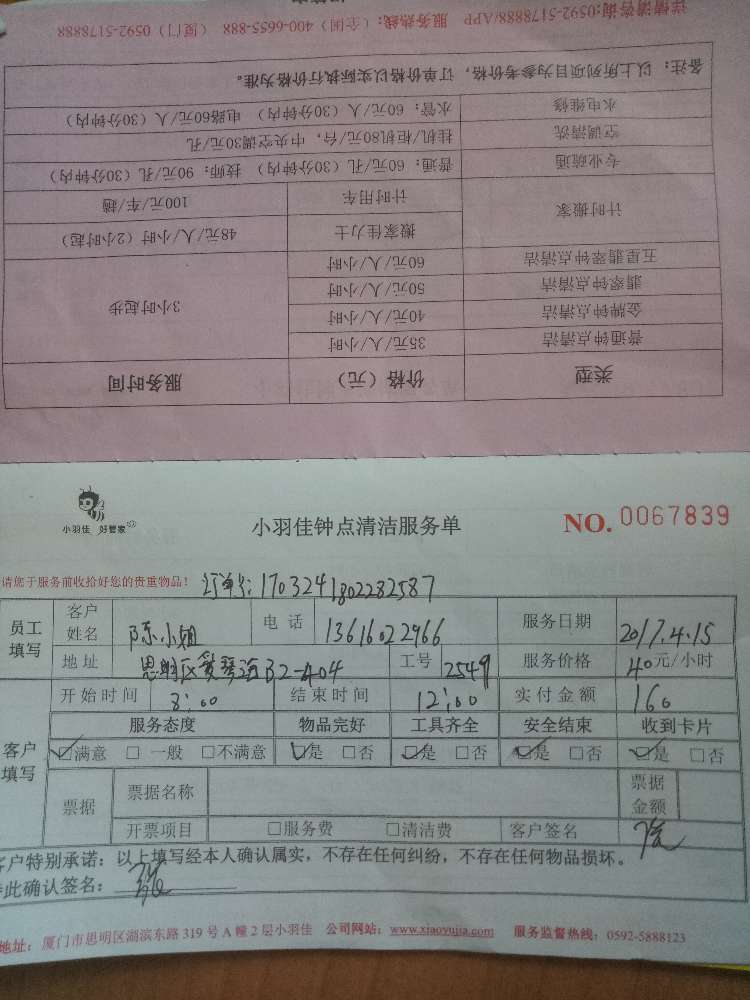 类型 价格（元） 服务时间
普通钟点清洁 35元/人/小时 3小时起步
金牌钟点清洁 40元/人/小时
翡翠钟点清洁 50元/人/小时
五星翡翠钟点清洁 60元/人/小时
计时搬家 搬家佳力士 48元/人/小时（2小时起）
计时用车 100元/车/趟
专业疏通 普通：60元/孔（30分钟内） 技师：90元/孔（30分钟内）
空调清洗 挂机/柜机80元/台，中央空调30元/孔
水电维修 水管：60元/人（30分钟内） 电路60元/人（30分钟内）
备注：以上所列项目为参考价格，订单价格以实际执行价格为准。
详情请咨询:0592-5178888/APP 服务热线：（全国）400-6655-888 （厦门）0592-5178888
小羽佳 好管家
小羽佳钟点清洁服务单
NO. 0067839
请您于服务前收拾好您的贵重物品！ 订单号:1703241802282587
员工填写 客户姓名 陈小姐 电话 13616022966 服务日期 2017.4.15
地址 思明区 B2-404 工号 2549 服务价格 40元/小时
客户填写 开始时间 8:00 结束时间 12:00 实付金额 160
服务态度 物品完好 工具齐全 安全结束 收到卡片
☑满意 □一般 □不满意 ☑是 □否 ☑是 □否 ☑是 □否 ☑是 □否
票据 票据名称 票据金额
开票项目 □服务费 □清洁费 客户签名
客户特别承诺：以上填写经本人确认属实，不存在任何纠纷，不存在任何物品损坏。
特此确认签名：
地址：厦门市思明区湖滨东路319号A幢2层小羽佳 公司网站：www.xiaoyujia.com 服务监督热线：0592-5888123